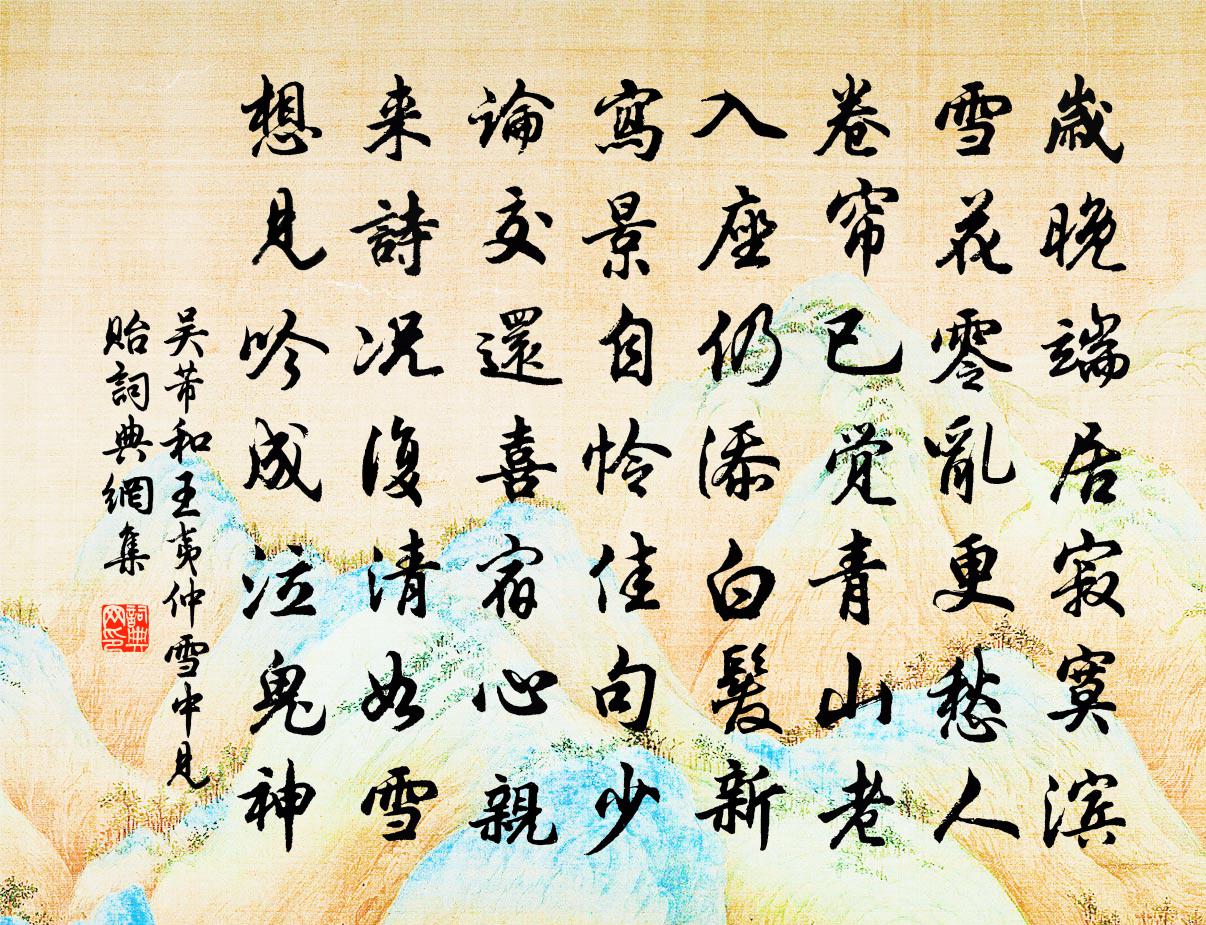 歲晚端居寂寞滨
雪花零亂更愁人
卷帘已觉青山老
入座仍添白髮新
寫景自怜佳句少
論交還喜宿心親
来詩况復清如雪
想見吟成泣鬼神
吴芾和王夷仲雪中見
貽詞典網集
詞典网印